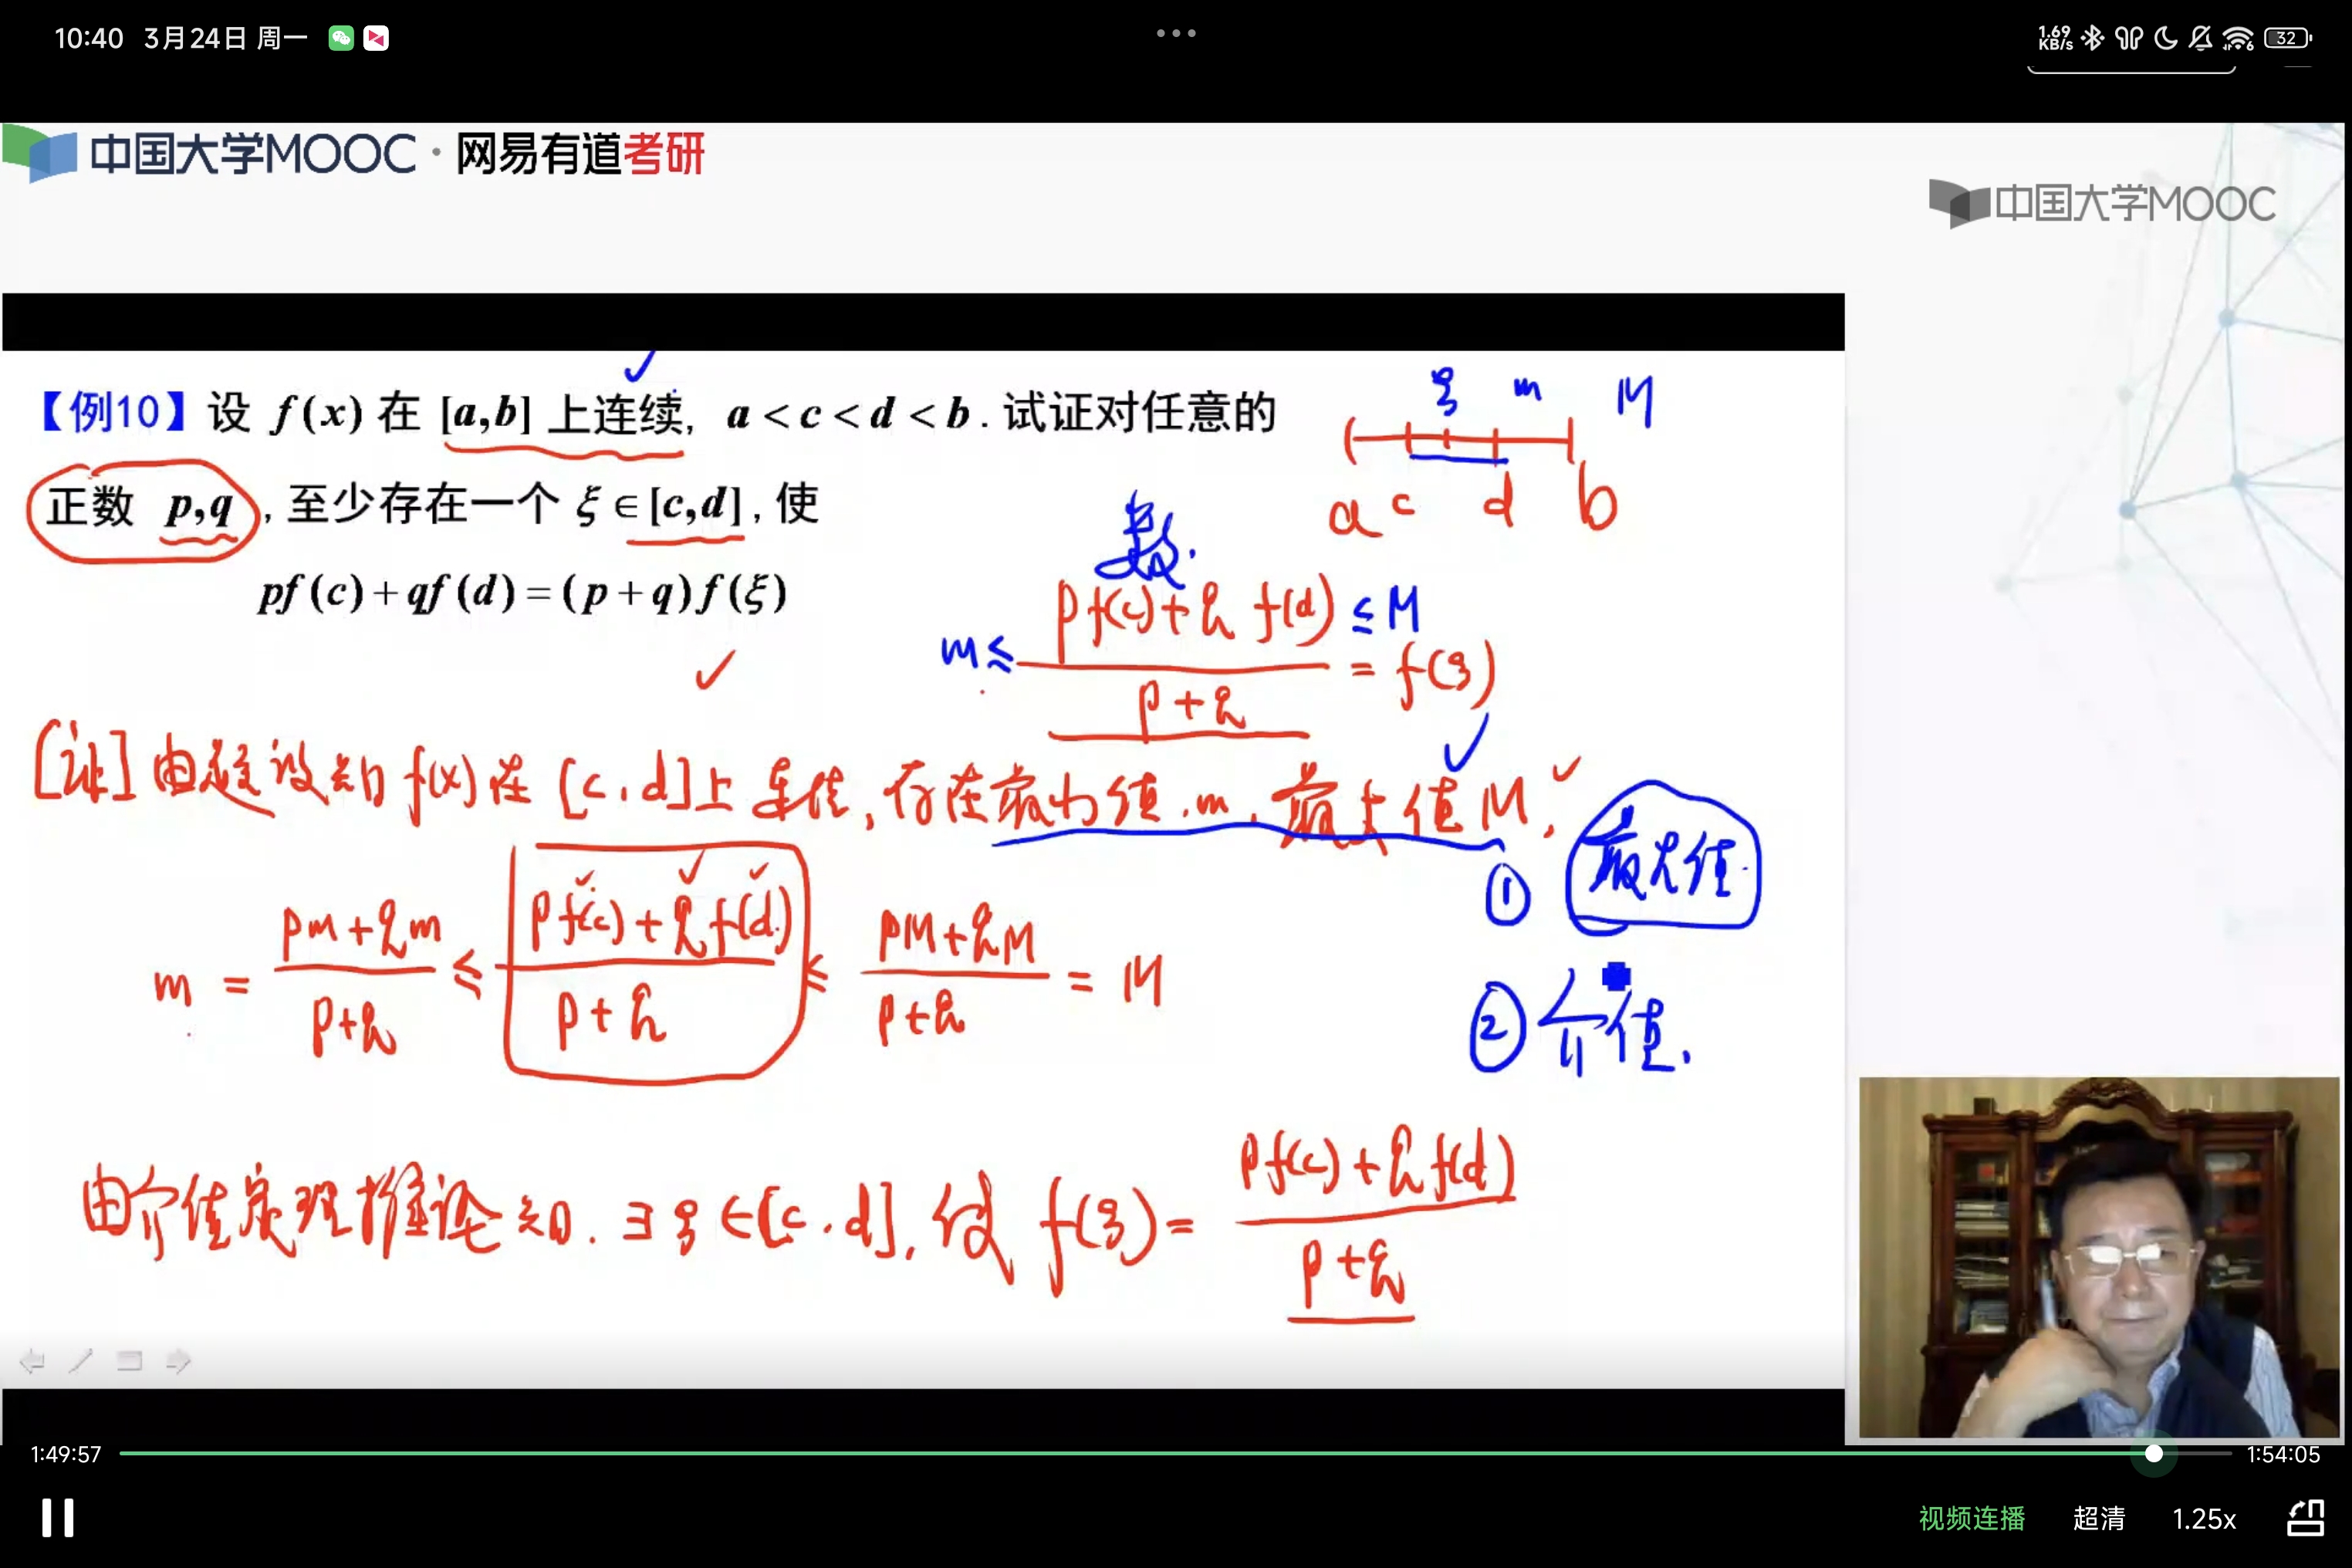 10:40 3月24日 周一
1.69 KB/s 32
中国大学MOOC · 网易有道考研
中国大学MOOC
【例10】设 f(x) 在 [a,b] 上连续, a<c<d<b. 试证对任意的
正数 p,q, 至少存在一个 ξ∈[c,d], 使
pf(c)+qf(d)=(p+q)f(ξ)
ξ m M
a c d b
数.
m ≤ (pf(c)+qf(d))/(p+q) ≤ M
= f(ξ)
[证] 由题设知 f(x)在 [c,d]上连续, 存在最小值 m, 最大值 M,
① 最大值
m = (pm+qm)/(p+q) ≤ (pf(c)+qf(d))/(p+q) ≤ (pM+qM)/(p+q) = M
② 介值.
由介值定理推论知. ∃ ξ∈[c,d], 使 f(ξ)= (pf(c)+qf(d))/(p+q)
1:49:57 1:54:05
视频连播 超清 1.25x